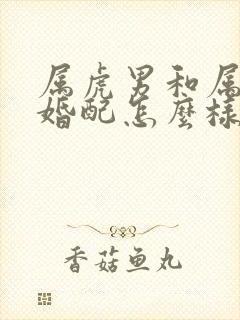 属虎男和属
婚配怎麽样
香菇鱼丸